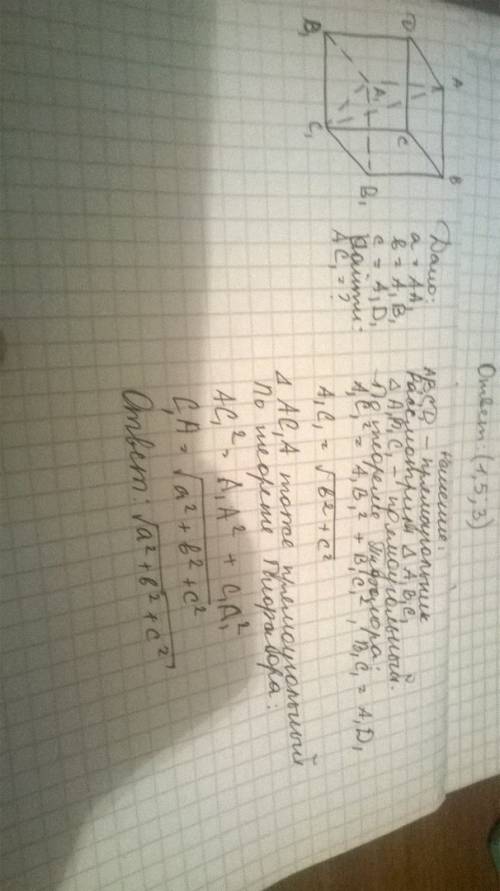 Ответ: (1,5,3)
D
A
B
C
B₁
A₁
C₁
B₁
Дано:
a = AA₁
b = A₁B₁
c = A₁D₁
Найти:
AC₁ = ?
Решение:
ABCD – прямоугольник
Рассмотрим Δ A₁B₁C₁
Δ A₁B₁C₁ – прямоугольный.
По теореме Пифагора:
A₁C₁² = A₁B₁² + B₁C₁², B₁C₁ = A₁D₁
A₁C₁ = √b² + c²
Δ AC₁A тоже прямоугольный
По теореме Пифагора:
AC₁² = A₁A² + C₁A₁²
C₁A = √a² + b² + c²
Ответ: √a² + b² + c²